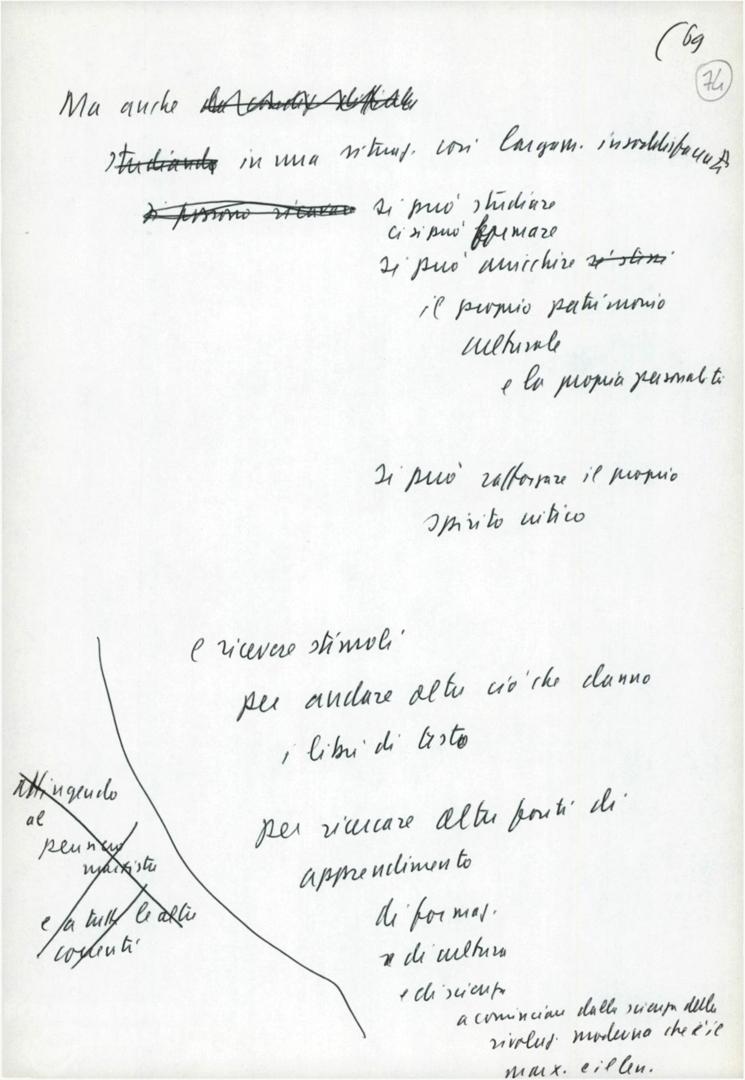 (69
74
Ma anche
studiando in una situaz. così largam. insoddisfacente
si possono ricavare si può studiare
ci si può formare
si può arricchire
il proprio patrimonio
culturale
e la propria personalità
si può rafforzare il proprio
spirito critico
e ricevere stimoli
per andare oltre ciò che danno
i libri di testo
attingendo
al
pensiero
marxista
e a tutte le altre
correnti
per ricercare altre fonti di
apprendimento
di formaz.
di cultura
e di scienza
a cominciare dalla scienza della
rivoluz. moderna che è il
marx. e il len.